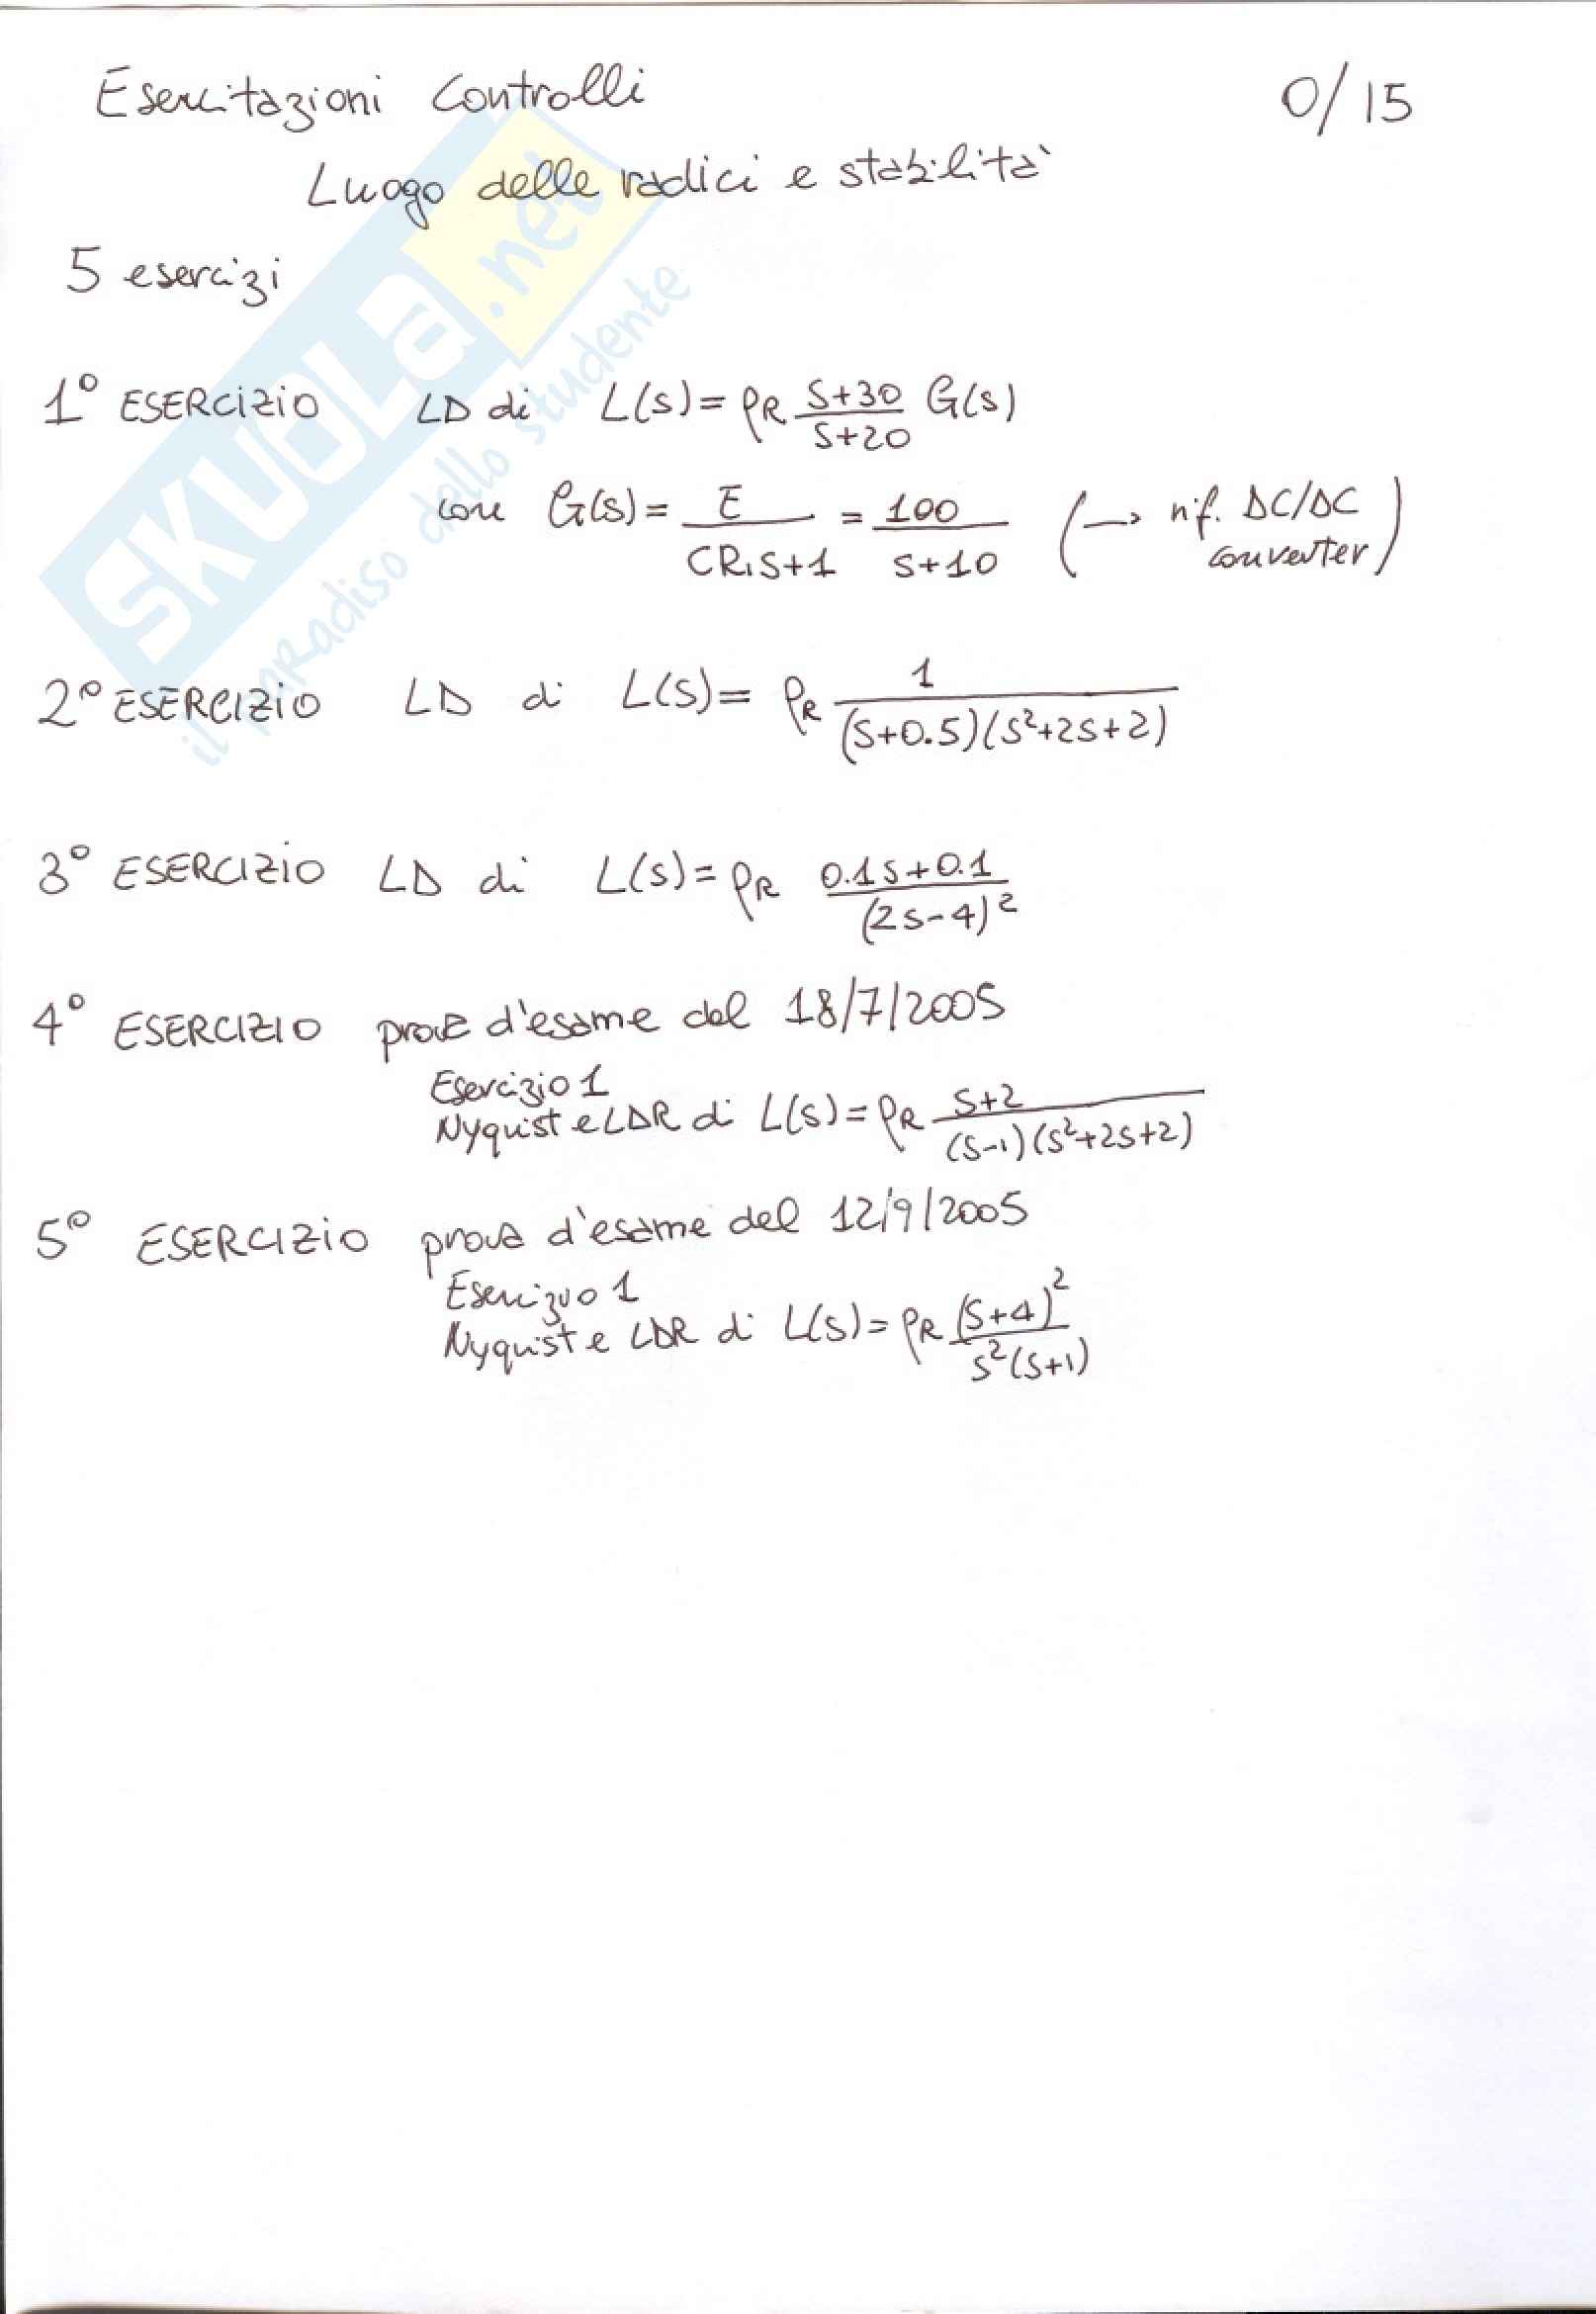 Esercitazioni Controlli 0/15
Luogo delle radici e stabilità
5 esercizi
1° ESERCIZIO LD di L(s) = ρR (s+30)/(s+20) G(s)
con G(s) = E/(CR1s+1) = 100/(s+10) (→ rif. DC/DC converter)
2° ESERCIZIO LD di L(s) = ρR 1/((s+0.5)(s²+2s+2))
3° ESERCIZIO LD di L(s) = ρR (0.1s+0.1)/(2s-4)²
4° ESERCIZIO prova d'esame del 18/7/2005
Esercizio 1
Nyquist e LDR di L(s) = ρR (s+2)/((s-1)(s²+2s+2))
5° ESERCIZIO prova d'esame del 12/9/2005
Esercizio 1
Nyquist e LDR di L(s) = ρR (s+4)²/(s²(s+1))
SKUOLA.net
il paradiso dello studente